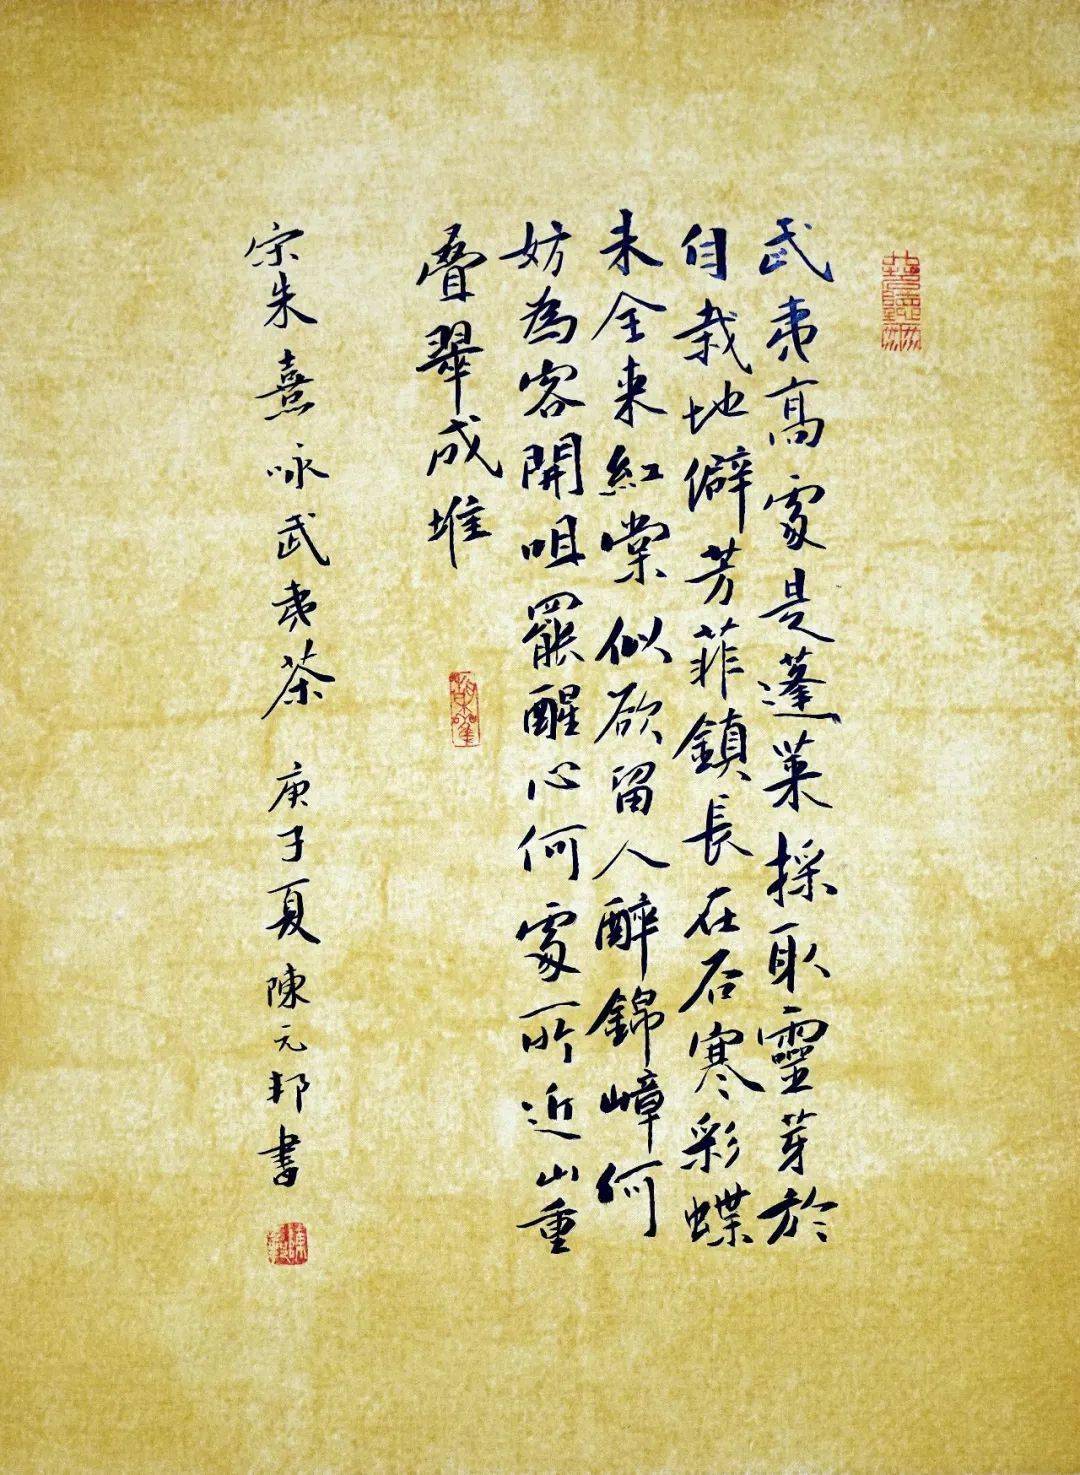 武夷高處是蓬萊採取靈芽於
自栽地僻芳菲鎮長在谷寒彩蝶
未全来紅棠似欲留人醉錦幛何
妨為客開咀罷醒心何處所近山重
疊翠成堆
宗朱熹咏武夷茶 庚子夏陳元邦書